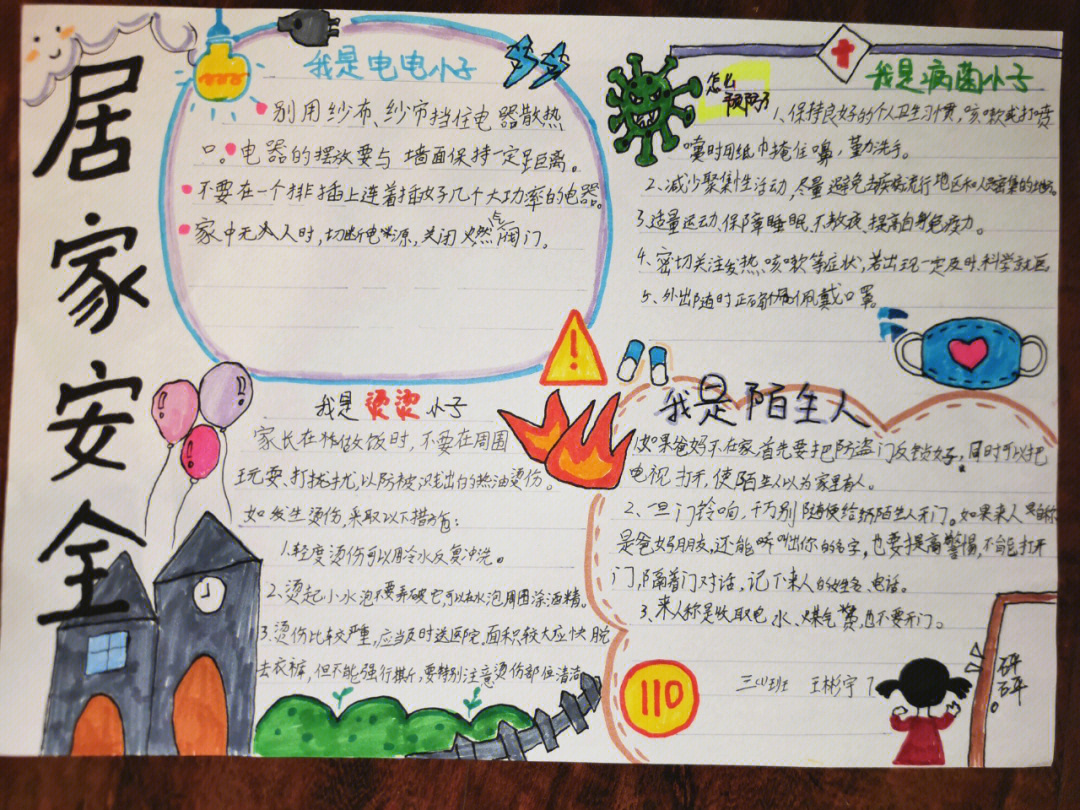 居家安全
我是电电小子
别用纱布、纱帘挡住电器散热
口。电器的摆放要与墙面保持一定距离。
不要在一个排插上连着插好几个大功率的电器。
家中无人时,切断电源,关闭燃气阀门。
我是病菌小子
怎么
预防
1、保持良好的个人卫生习惯,咳嗽或打喷
嚏时用纸巾掩住嘴,鼻,勤洗手。
2、减少聚集性活动,尽量避免去疾病流行地区和人员密集的地方。
3、适量运动、保障睡眠、不熬夜、提高自身免疫力。
4、密切关注发热、咳嗽等症状,若出现一定及时、科学就医
5、外出随时正确佩戴口罩。
我是烫烫小子
家长在做饭时,不要在周围
玩耍、打扰,以防被溅出的热油烫伤。
如发生烫伤,采取以下措施:
1、轻度烫伤可以用冷水反复冲洗。
2、烫起小水泡不要弄破它,可以在水泡周围涂酒精。
3、烫伤比较严重,应当及时送医院。面积较大应快脱
去衣裤,但不能强行撕斤,要特别注意烫伤部位清洁
我是陌生人
1、如果爸妈不在家,首先要把防盗门反锁好。同时可以把
电视打开,使陌生人以为家里有人。
2、一旦门铃响,千万别随便给陌生人开门。如果来人自称
是爸妈朋友,还能听叫出你的名字,也要提高警惕,不能打开
门,隔着门对话,记下来人的姓名、电话。
3、来人称是收取电、水、煤气费,也不要开门。
110
三(1)班 王彬宇
砰
砰